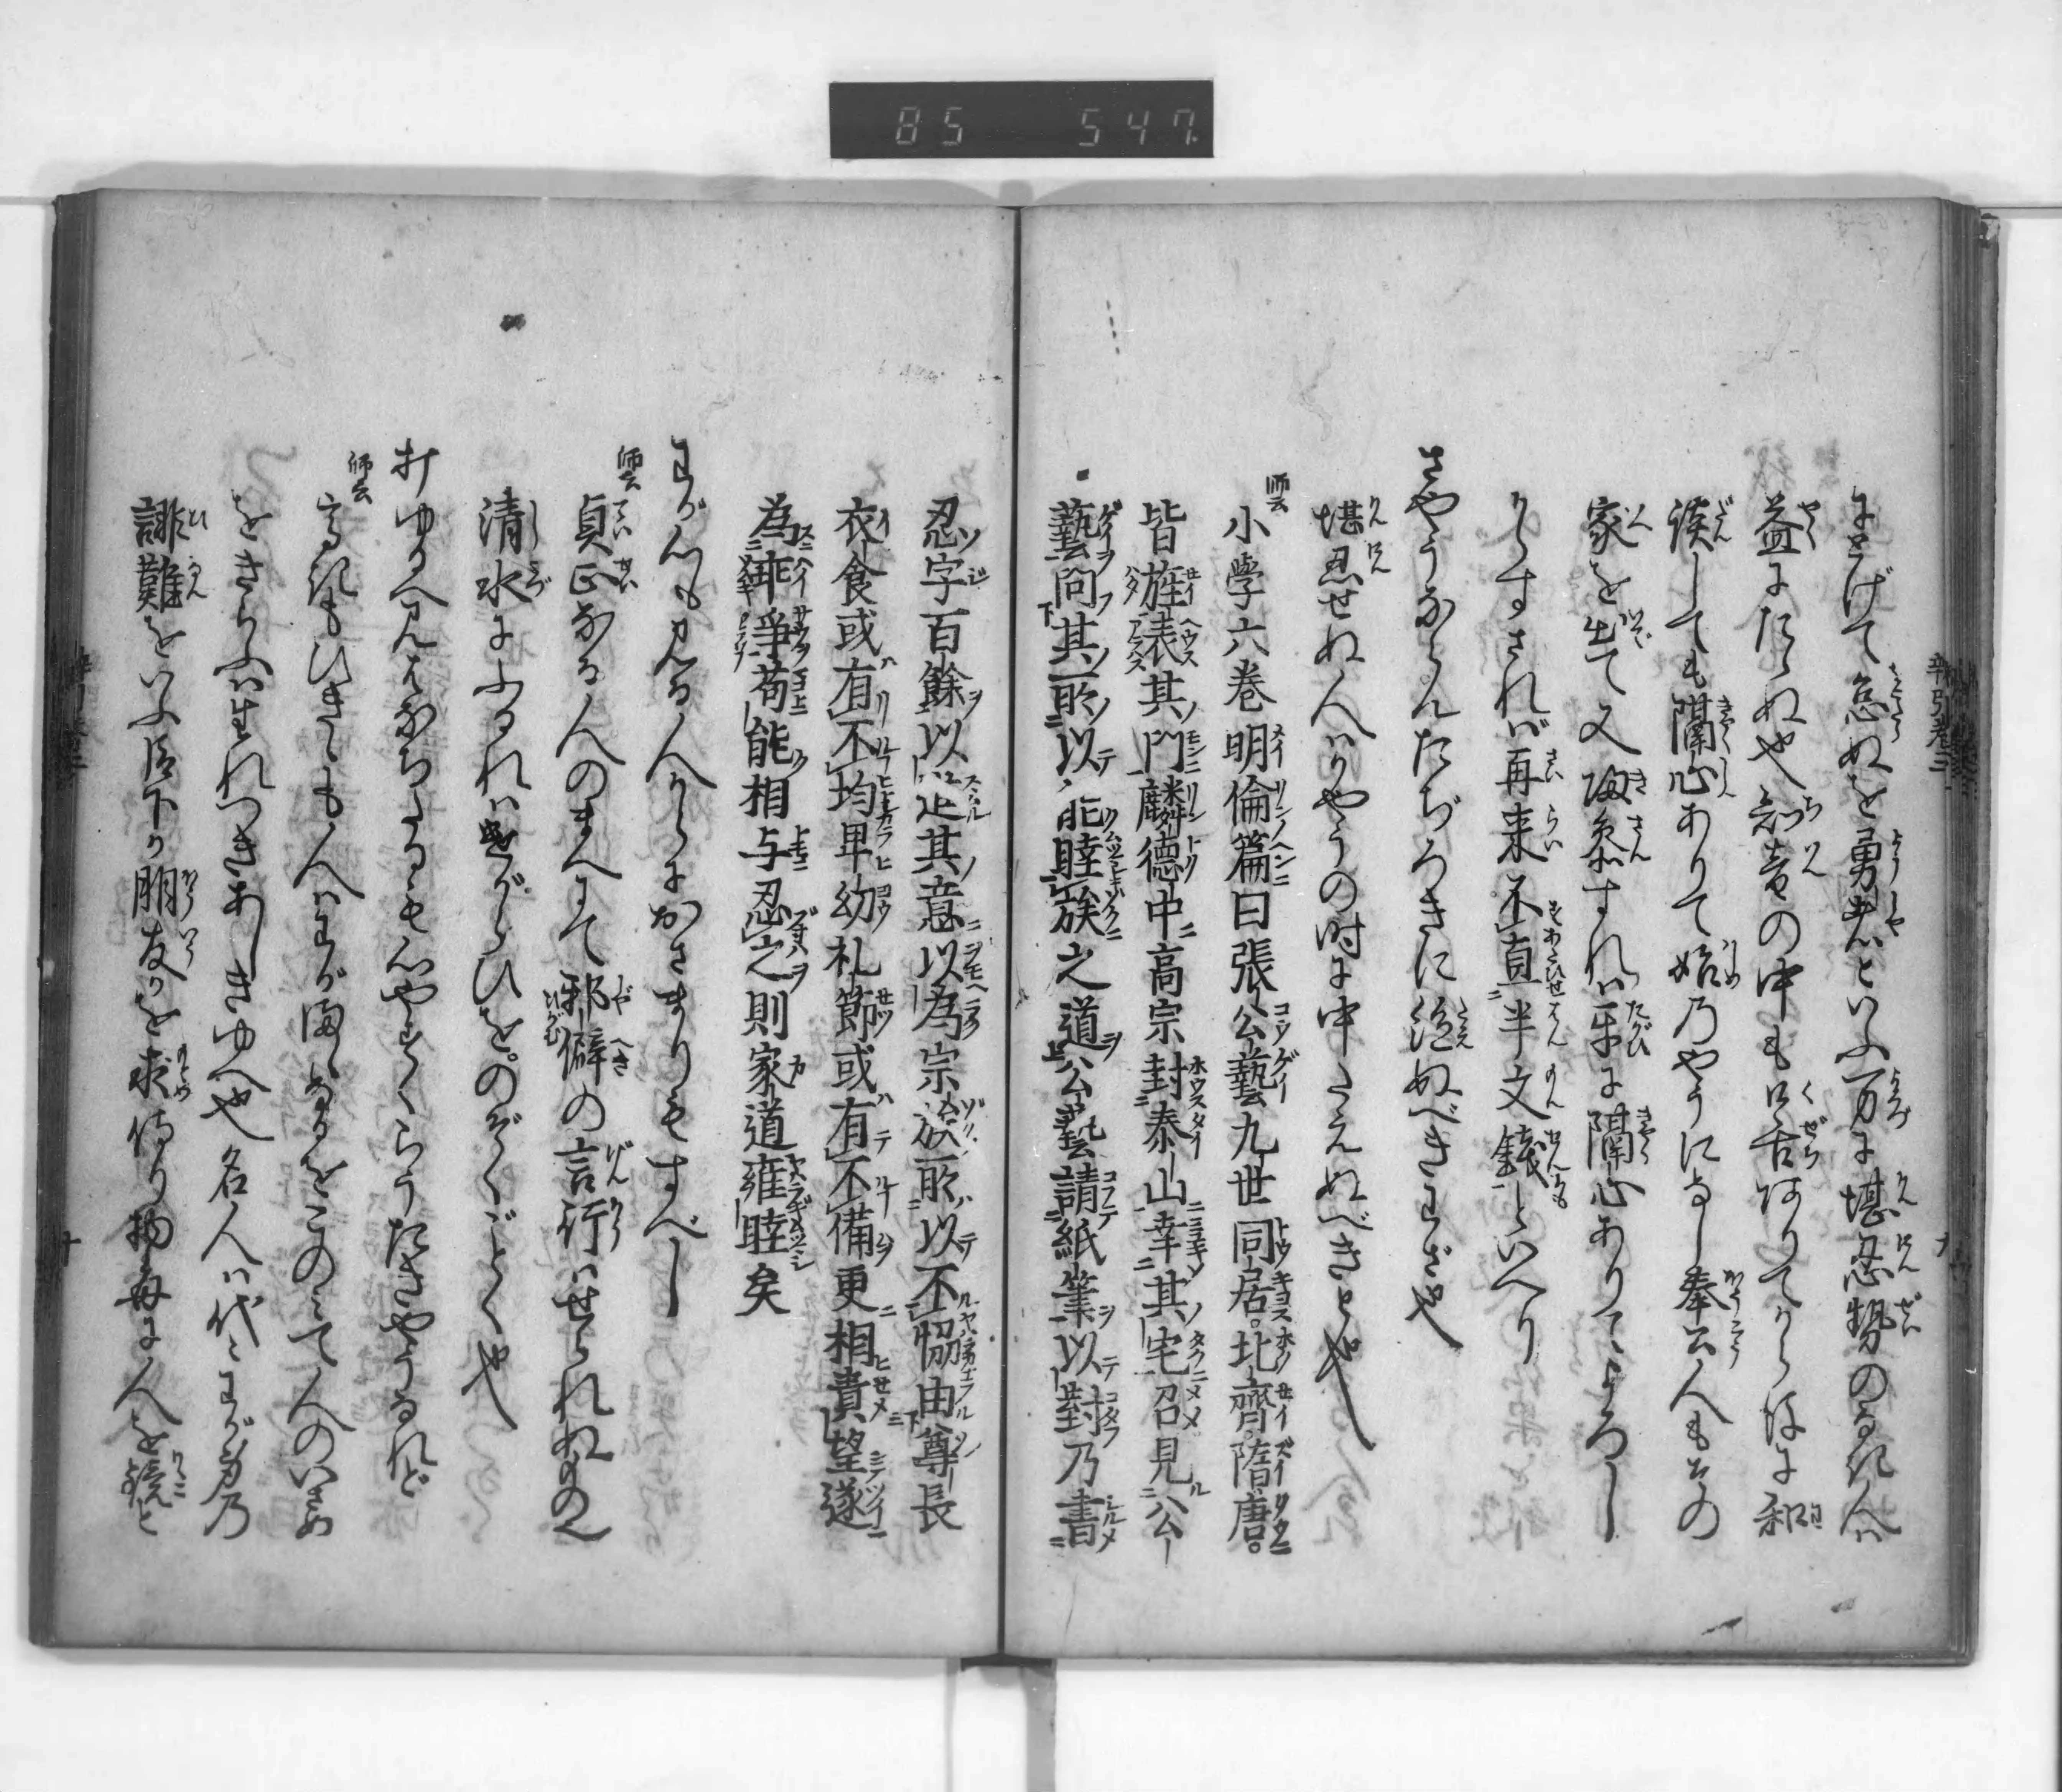 85 547
にとげて怠ぬを勇者といふ万に堪忍勢のなき人ハ
益にたゝぬ也知音の中も口舌ありてからはに和
談しても隔心ありて始乃やうになし奉公人もその
家を出て又帰参すれハ互に隔心ありてよろし
からすされば再来不直半文銭といへり
さやうならんたぢろきに泣ぬべきわざや
堪忍せぬ人ハかやうの時に中たえぬべきとや
師云
小学六巻明倫篇曰張公藝九世同居。北齊。隋唐。
皆旌表其門麟德中高宗封泰山幸其宅召見公
藝問其所以能睦族之道公藝請紙筆以対乃書
忍字百餘以進其意以為宗族所以不恊由尊長
衣食或有不均卑幼礼節或有不備更相責望遂
為乖爭苟能相与忍之則家道雍睦矣
わが心も見る人からにおさまりもすべし
師云
貞正なる人のまへにて邪僻の言行ハせられぬもの也
清水にふるれハきがらひを。のぞくごとく也
打ゆるへ見えなちなるも心やすくらうたきやうなれど
師云
高きもひきゝも人ハわが海なるをこのミて人のいさめ
をきらふハ生れつきあしきゆへ也名人ハ代々わが身乃
誹難をいふ臣下か朋友かを求侍り物毎に人を鏡と